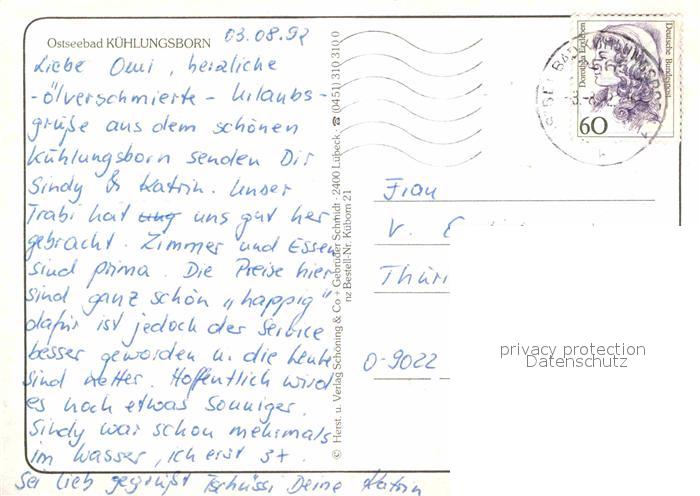 Ostseebad KÜHLUNGSBORN 03.08.92
Liebe Omi, herzliche
-ölverschmierte- Urlaubs-
grüße aus dem schönen
Kühlungsborn senden Dir
Sindy & Katrin. Unser
Trabi hat ung uns gut her
gebracht. Zimmer und Essen
sind prima. Die Preise hier
sind ganz schön "happig"
dafür ist jedoch der Service
besser geworden u. die Leute
sind netter. Hoffentlich wird
es noch etwas sonniger.
Sindy war schon mehrmals
im Wasser, ich erst 3x.
Sei lieb gegrüßt Tschüssi Deine Katrin
© Herst. u. Verlag Schöning & Co + Gebrüder Schmidt · 2400 Lübeck · ☎ (0451) 310 310 0
nz Bestell-Nr. Küborn 21
Deutsche Bundespost
Dorothea Erxleben
60
Frau
V. E
Thür
O-9022
privacy protection
Datenschutz